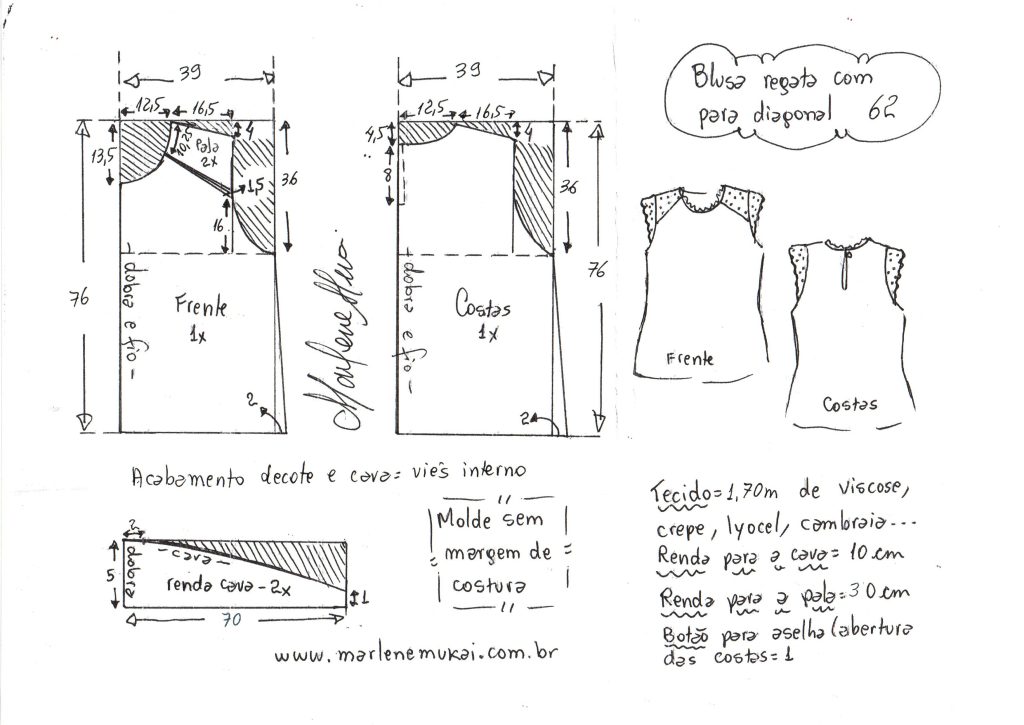 Blusa regata com
para diagonal 62
39
12,5 16,5
4
13,5
10,25
Pala
2x
1,5
36
16
76
dobra e fio
Frente
1x
2
Marlene Mukai
39
12,5 16,5
4,5
4
8
36
76
dobra e fio
Costas
1x
2
Frente
Costas
Acabamento decote e cava = viés interno
2
5
dobra
cava
renda cava - 2x
1
70
Molde sem
margem de
costura
Tecido = 1,70m de viscose,
crepe, lyocel, cambraia...
Renda para a cava = 10 cm
Renda para a pala = 30 cm
Botão para aselha (abertura
das costas = 1
www.marlenemukai.com.br